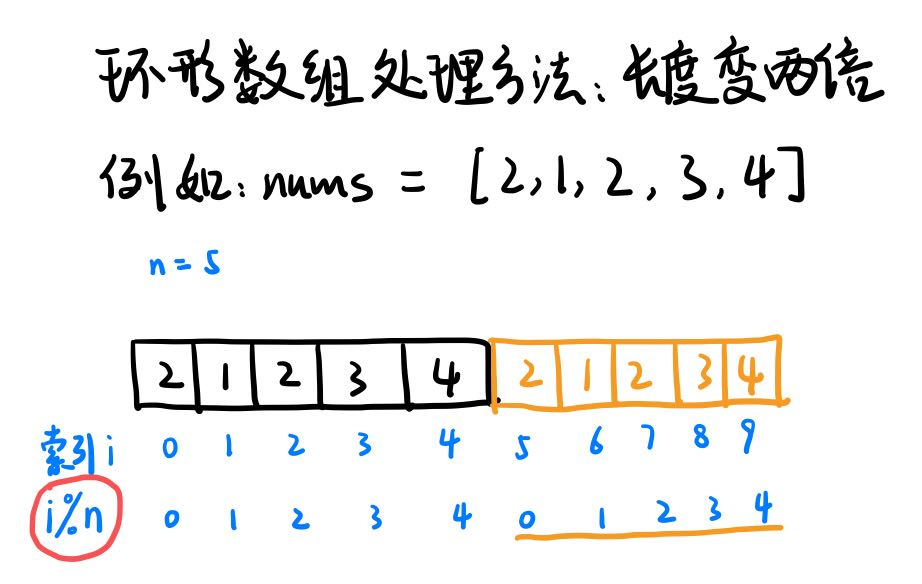 环形数组处理方法：长度变两倍
例如：nums = [2,1,2,3,4]
n=5
2 1 2 3 4 2 1 2 3 4
索引i 0 1 2 3 4 5 6 7 8 9
i%n 0 1 2 3 4 0 1 2 3 4